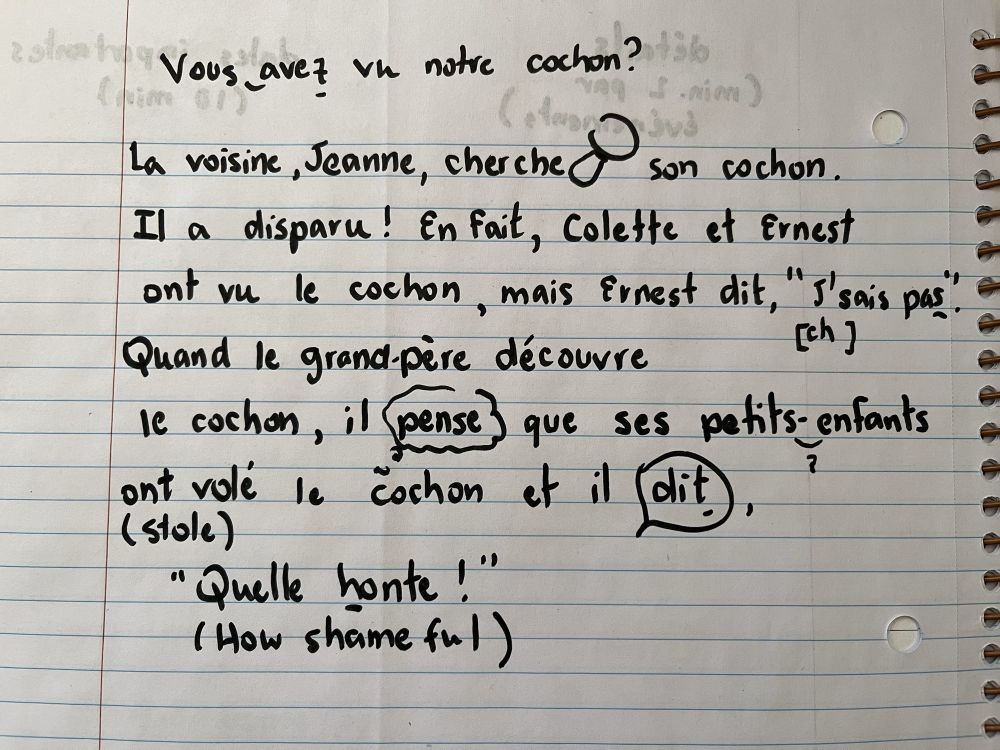 Vous avez vu notre cochon?
La voisine, Jeanne, cherche son cochon.
Il a disparu! En fait, Colette et Ernest
ont vu le cochon, mais Ernest dit, "J'sais pas".
[ch]
Quand le grand-père découvre
le cochon, il pense que ses petits-enfants
ont volé le cochon et il dit,
(stole)
"Quelle honte!"
(How shameful)